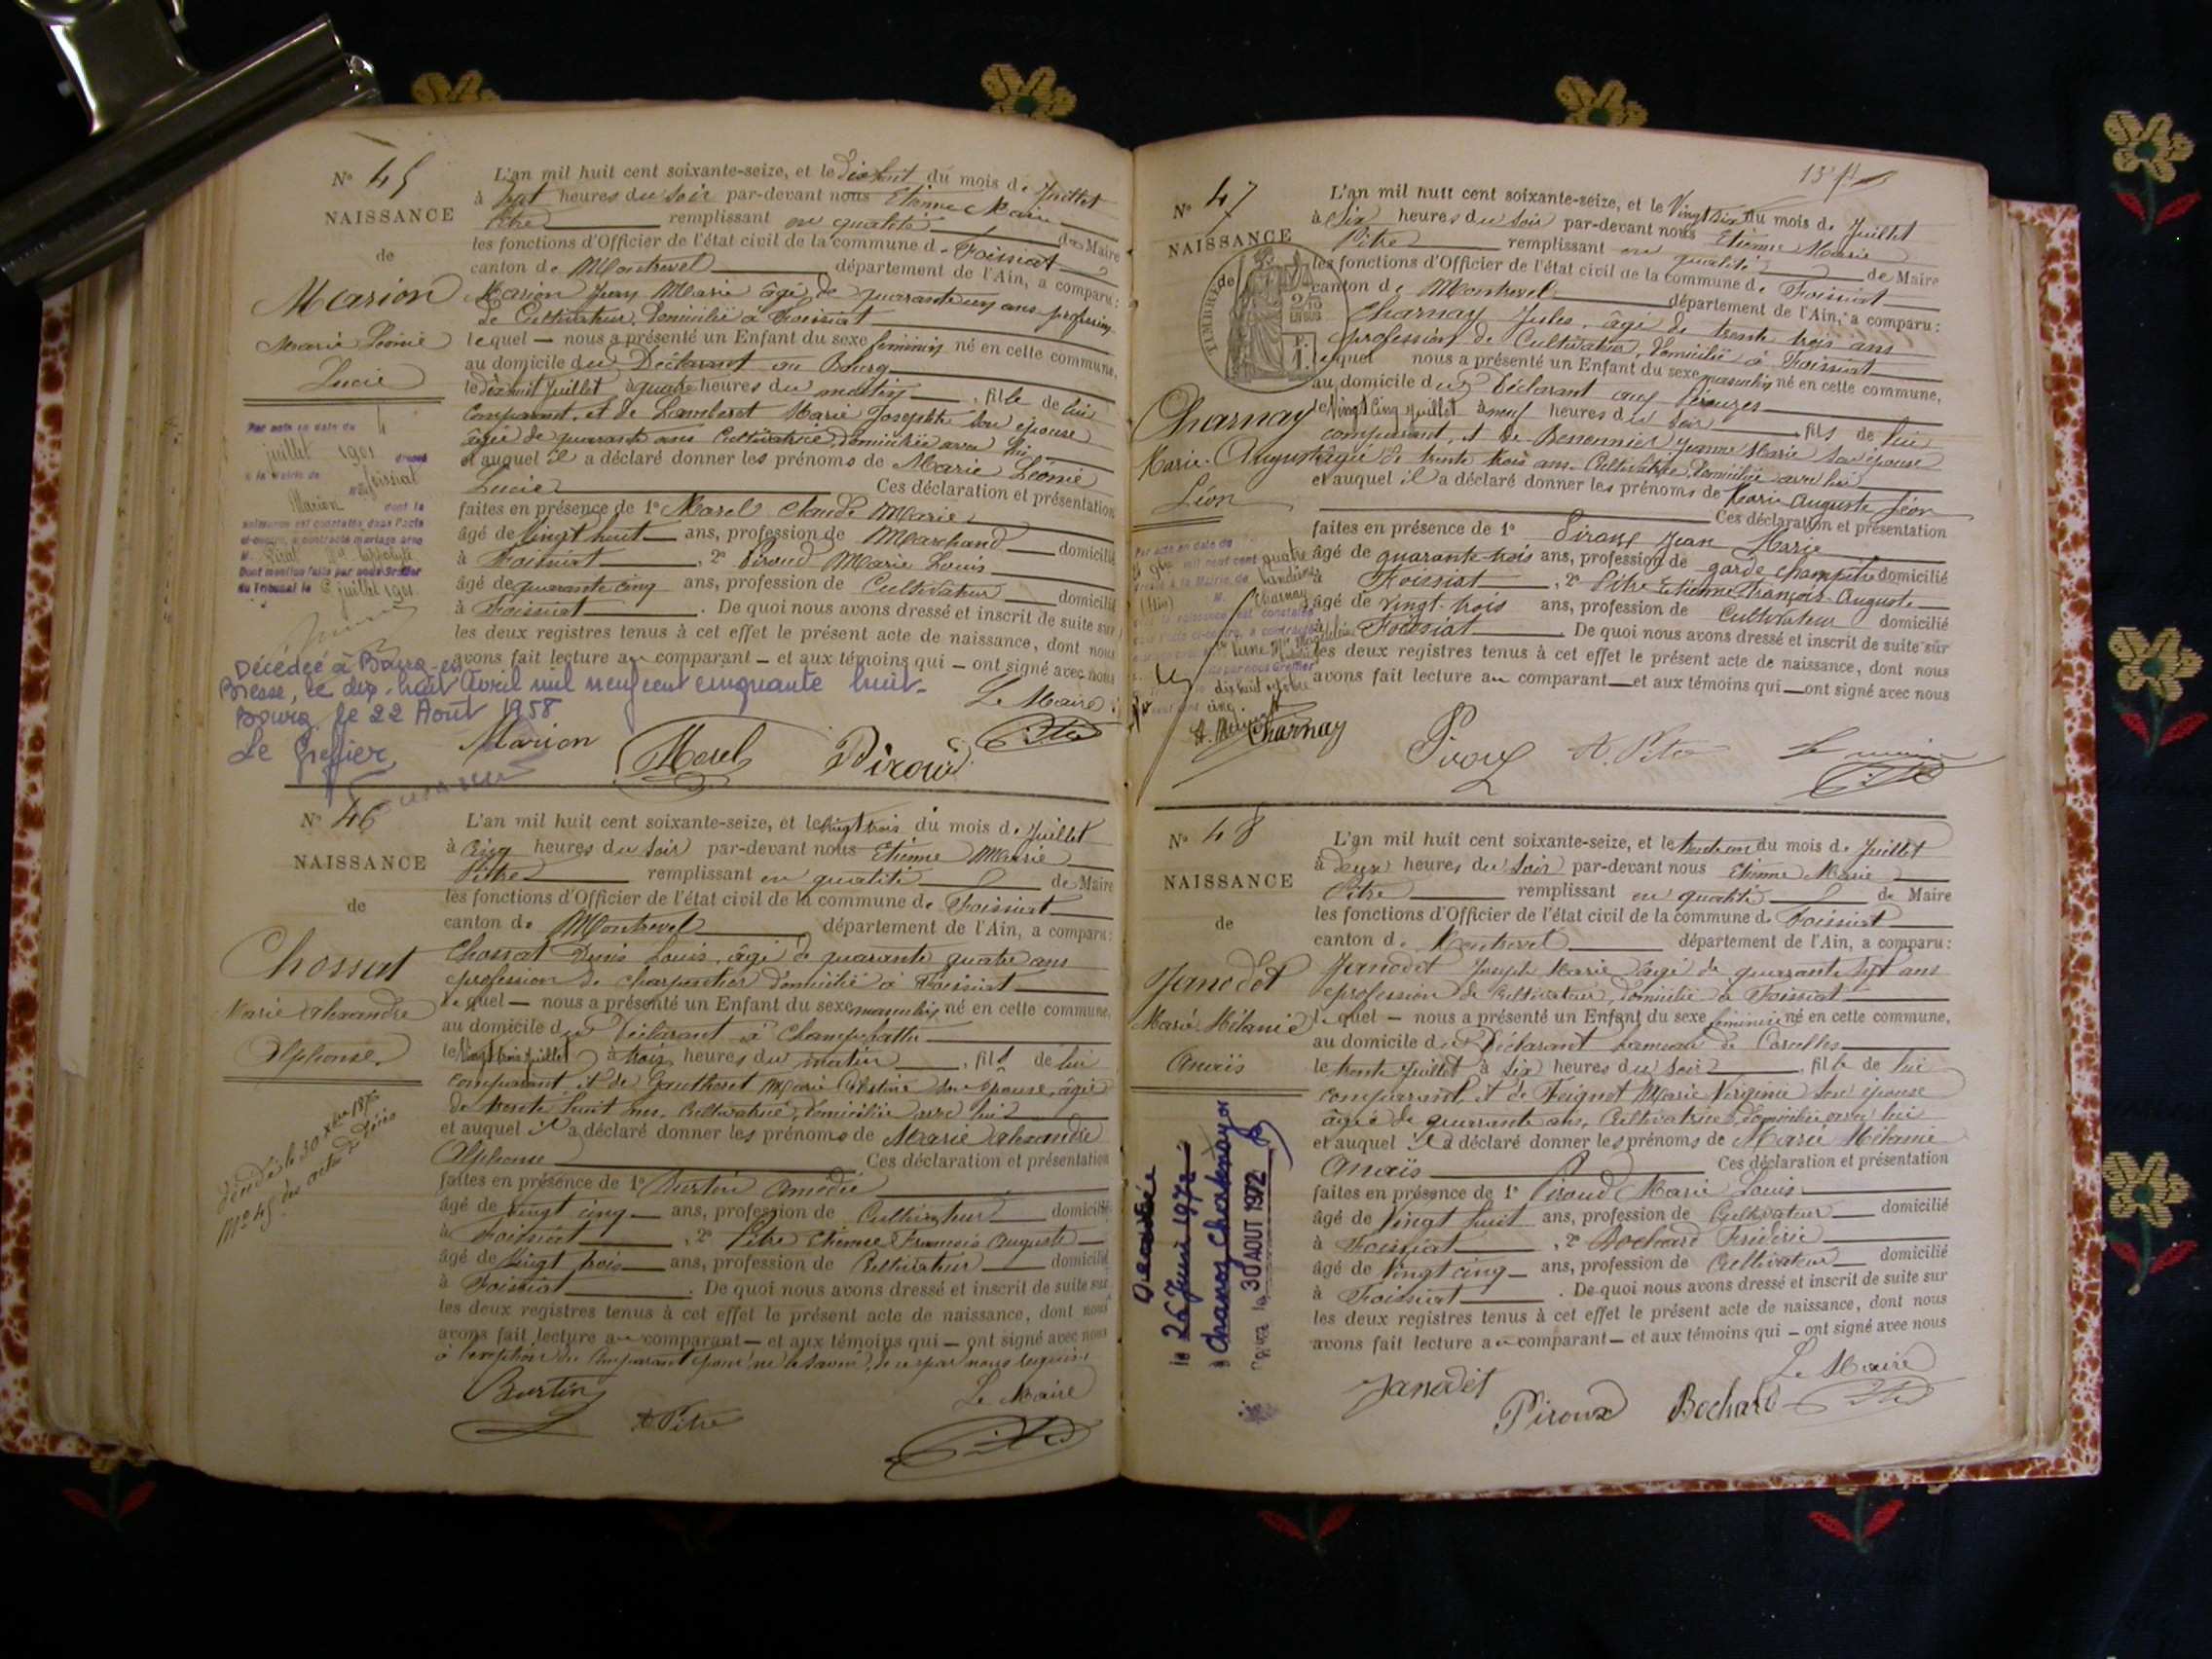 N° 45
NAISSANCE
de
Marion
Marie Léonie
Lucie
Par acte en date du 4
juillet 1901 dressé
à la Mairie de
Foissiat
Marion dont la
naissance est constatée dans l'acte
ci-contre, a contracté mariage avec
Dont mention faite par nous Greffier
du Tribunal le 6 juillet 1901
Décédée à Bourg-en-
Bresse, le dix-huit Avril mil neuf cent cinquante huit.
Bourg, le 22 Août 1958
Le Greffier,
L'an mil huit cent soixante-seize, et le dix huit du mois de Juillet
à sept heures du soir par-devant nous Etienne Marie
Pitre remplissant en qualité de Maire
les fonctions d'Officier de l'état civil de la commune de Foissiat
canton de Montrevel département de l'Ain, a comparu:
Marion Jean Marie âgé de quarante un ans profession
de Cultivateur, domicilié à Foissiat
lequel — nous a présenté un Enfant du sexe féminin né en cette commune,
au domicile du Déclarant au Bourg
le dix huit Juillet à quatre heures du matin, fille de lui
comparant, et de Lamberet Marie Josephte son épouse
âgée de quarante ans Cultivatrice, domiciliée avec lui
et auquel il a déclaré donner les prénoms de Marie Léonie
Lucie Ces déclaration et présentation
faites en présence de 1° Morel Claude Marie
âgé de vingt huit ans, profession de Marchand domicilié
à Foissiat, 2° Piroud Marie Louis
âgé de quarante cinq ans, profession de Cultivateur domicilié
à Foissiat. De quoi nous avons dressé et inscrit de suite sur
les deux registres tenus à cet effet le présent acte de naissance, dont nous
avons fait lecture au comparant — et aux témoins qui — ont signé avec nous
Le Maire
Marion Morel Piroud Pitre
N° 46
NAISSANCE
de
Chossat
Marie Alexandre
Alphonse.
Décédé le 30 xbre 1876
N° 45 des actes de décès
L'an mil huit cent soixante-seize, et le vingt trois du mois de Juillet
à cinq heures du soir par-devant nous Etienne Marie
Pitre remplissant en qualité de Maire
les fonctions d'Officier de l'état civil de la commune de Foissiat
canton de Montrevel département de l'Ain, a comparu:
Chossat Denis Louis, âgé de quarante quatre ans
profession de charpentier domicilié à Foissiat
lequel — nous a présenté un Enfant du sexe masculin né en cette commune,
au domicile du Déclarant à
le vingt trois juillet à trois heures du matin, fils de lui
comparant, et de Gautheret Marie son épouse, âgée
de trente huit ans, Cultivatrice, domiciliée avec lui
et auquel il a déclaré donner les prénoms de Marie Alexandre
Alphonse Ces déclaration et présentation
faites en présence de 1° Burtin Amédée
âgé de vingt cinq ans, profession de Cultivateur domicilié
à Foissiat, 2° Pitre Etienne François Auguste
âgé de vingt trois ans, profession de Cultivateur domicilié
à Foissiat. De quoi nous avons dressé et inscrit de suite sur
les deux registres tenus à cet effet le présent acte de naissance, dont nous
avons fait lecture au comparant — et aux témoins qui — ont signé avec nous
à l'exception du comparant pour ne le savoir, de ce par nous requis.
Burtin Le Maire
A Pitre Pitre
N° 47
NAISSANCE
de
TIMBRE
Charnay
Marie-Auguste
Léon
Par acte en date du
mil neuf cent quatre
dressé à la Mairie de
(Ain) M. Charnay
dix huit octobre
L'an mil huit cent soixante-seize, et le vingt six du mois de Juillet
à six heures du soir par-devant nous Etienne Marie
Pitre remplissant en qualité de Maire
les fonctions d'Officier de l'état civil de la commune de Foissiat
canton de Montrevel département de l'Ain, a comparu:
Charnay Jules, âgé de trente trois ans
profession de Cultivateur, domicilié à Foissiat
lequel nous a présenté un Enfant du sexe masculin né en cette commune,
au domicile du Déclarant aux
le vingt cinq juillet à neuf heures du soir, fils de lui
comparant, et de Jeanne Marie son épouse
âgée de trente trois ans, Cultivatrice, domiciliée avec lui
et auquel il a déclaré donner les prénoms de Marie Auguste Léon
Ces déclaration et présentation
faites en présence de 1° Piroux Jean Marie
âgé de quarante trois ans, profession de garde champêtre domicilié
à Foissiat, 2° Pitre Etienne François Auguste
âgé de vingt trois ans, profession de Cultivateur domicilié
à Foissiat. De quoi nous avons dressé et inscrit de suite sur
les deux registres tenus à cet effet le présent acte de naissance, dont nous
avons fait lecture au comparant — et aux témoins qui — ont signé avec nous
Charnay Piroux A. Pitre Le maire
Pitre
N° 48
NAISSANCE
de
Janodet
Marie Mélanie
Anaïs
Décédée
le 26 Juin 1972
à Chanoz Chatenay
le 30 AOUT 1972
L'an mil huit cent soixante-seize, et le trente un du mois de Juillet
à deux heures du soir par-devant nous Etienne Marie
Pitre remplissant en qualité de Maire
les fonctions d'Officier de l'état civil de la commune de Foissiat
canton de Montrevel département de l'Ain, a comparu:
Janodet Joseph Marie âgé de quarante sept ans
profession de Cultivateur, domicilié à Foissiat
lequel — nous a présenté un Enfant du sexe féminin né en cette commune,
au domicile du Déclarant hameau de Corcelles
le trente Juillet à six heures du soir, fille de lui
comparant, et de Feignot Marie Virginie son épouse
âgée de quarante ans, Cultivatrice, domiciliée avec lui
et auquel il a déclaré donner les prénoms de Marie Mélanie
Anaïs Ces déclaration et présentation
faites en présence de 1° Piroud Marie Louis
âgé de vingt huit ans, profession de Cultivateur domicilié
à Foissiat, 2° Bochard Frédéric
âgé de vingt cinq ans, profession de Cultivateur domicilié
à Foissiat. De quoi nous avons dressé et inscrit de suite sur
les deux registres tenus à cet effet le présent acte de naissance, dont nous
avons fait lecture au comparant — et aux témoins qui — ont signé avec nous
Le Maire
Janodet Piroux Bochard Pitre